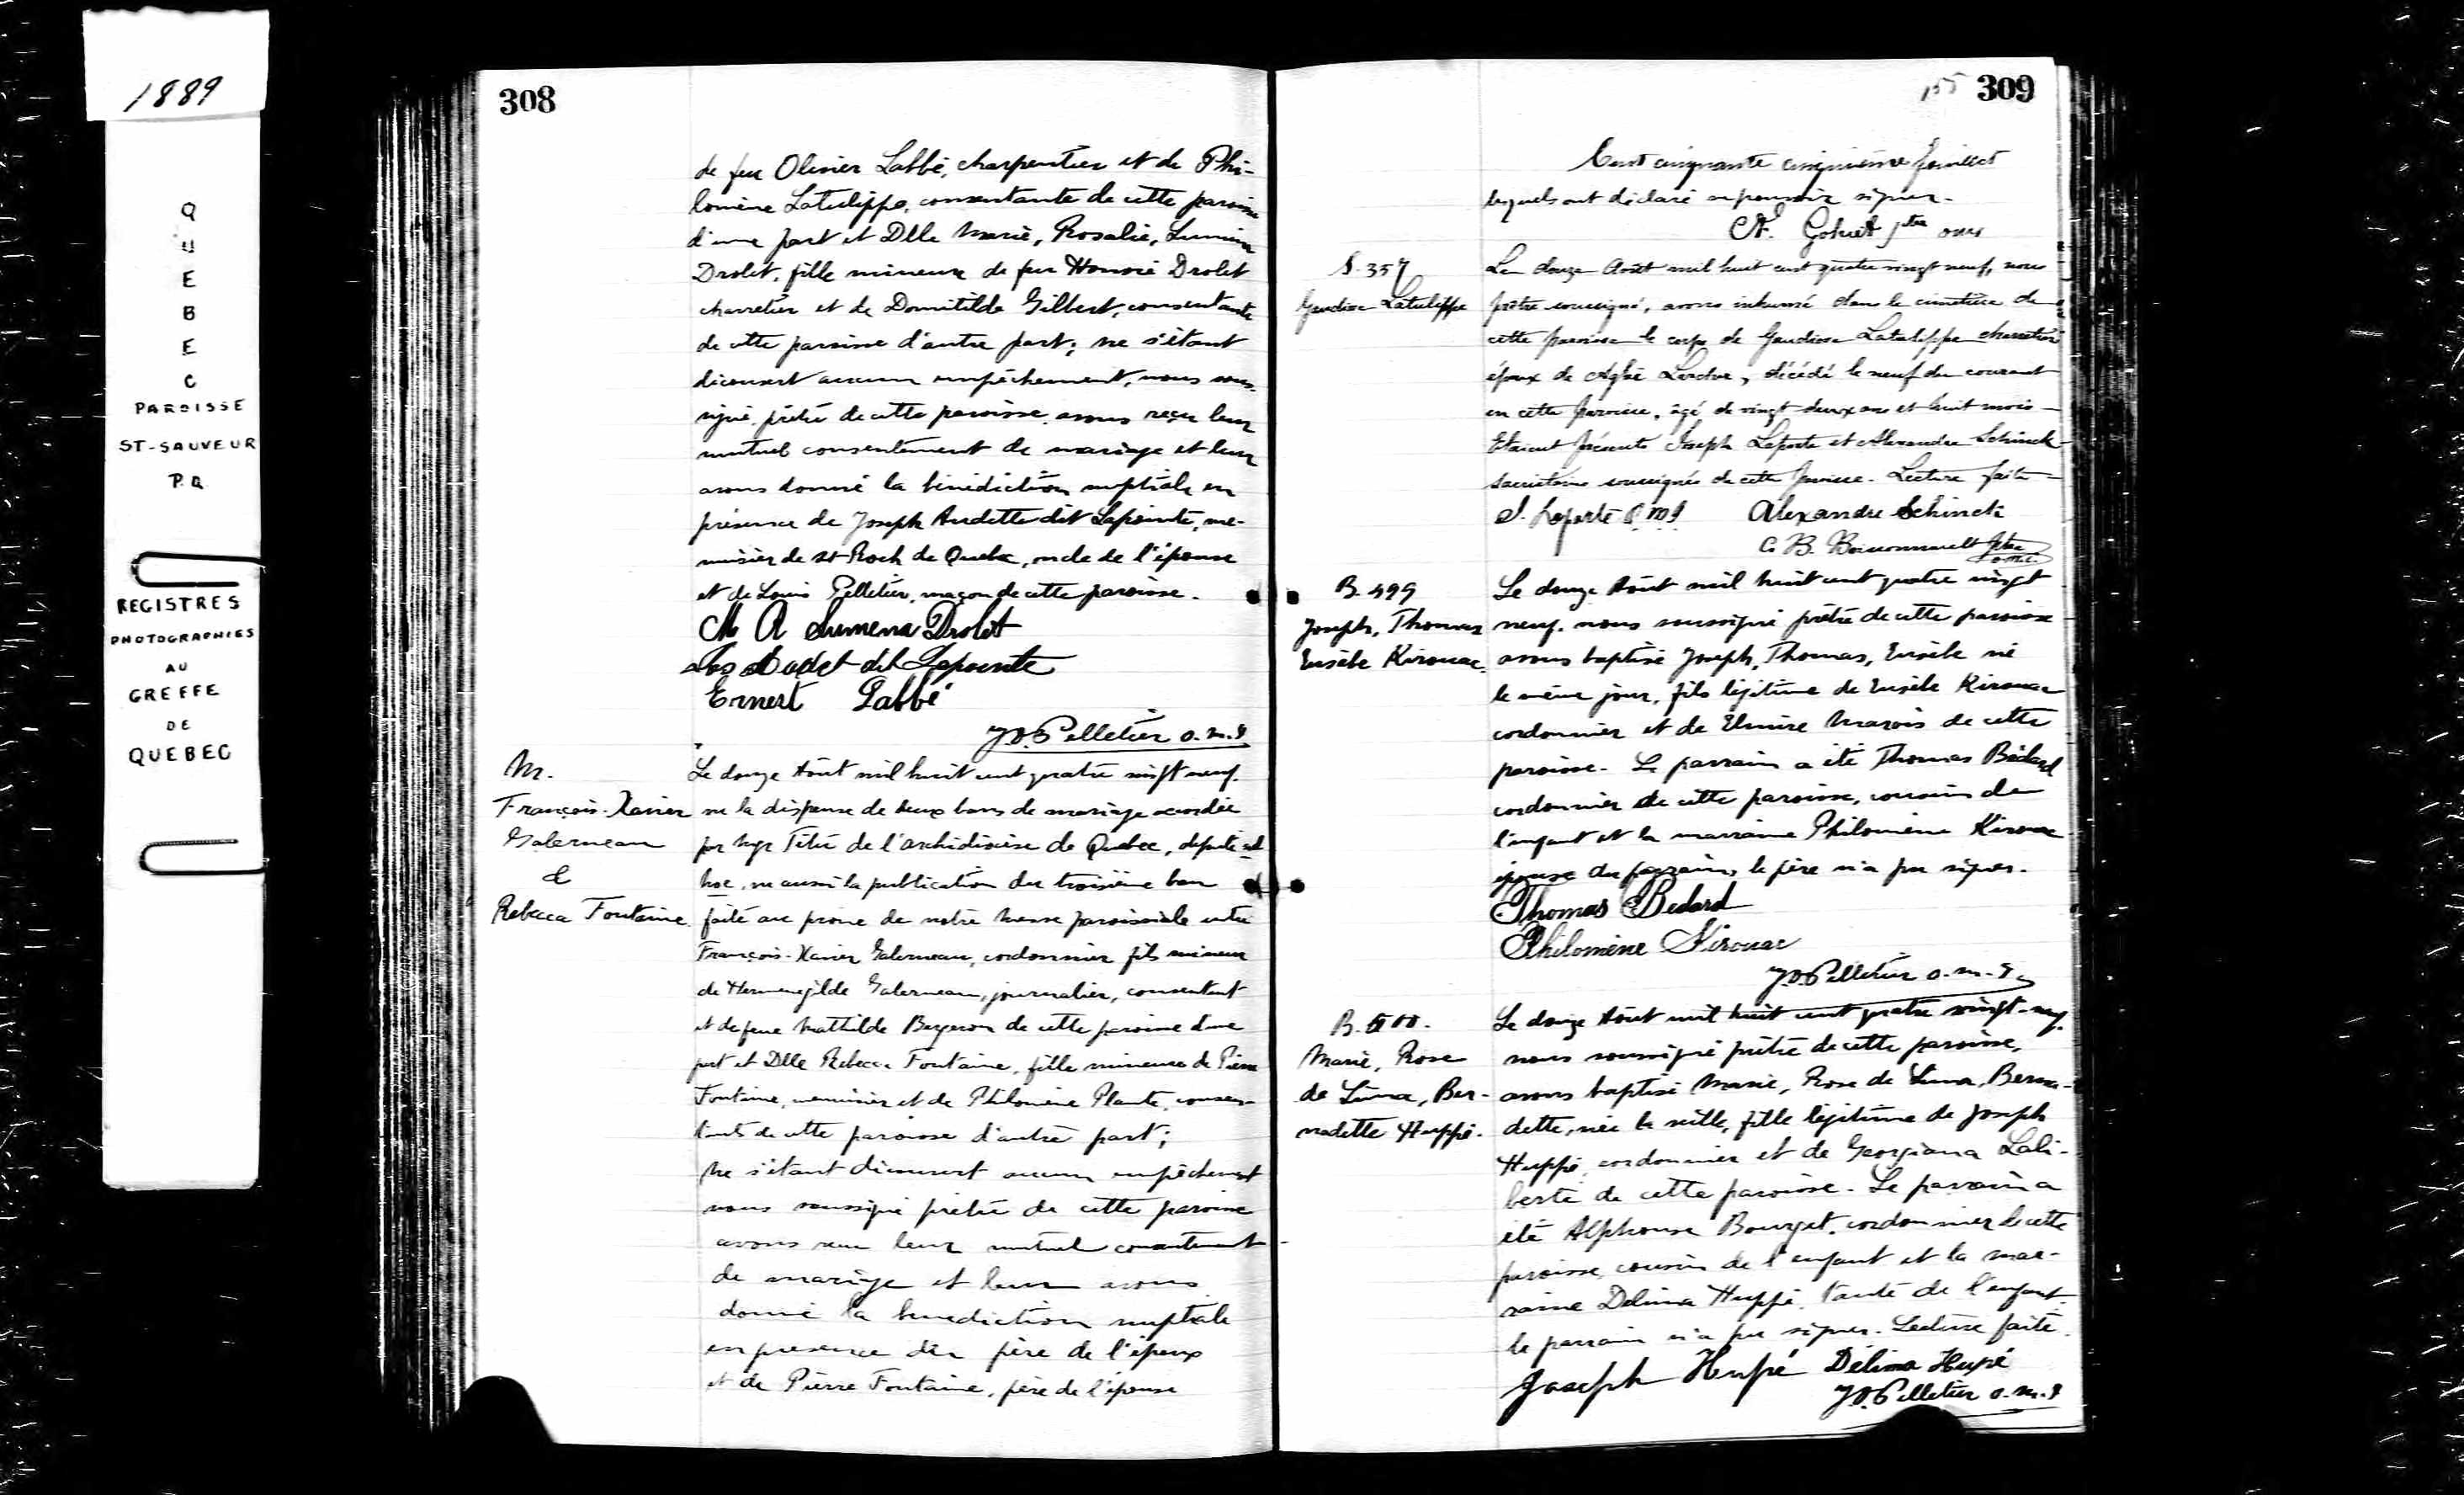 1889
QUEBEC
PAROISSE
ST-SAUVEUR
P.Q
REGISTRES
PHOTOGRAPHIES
AU
GREFFE
DE
QUEBEC
308
de feu Olivier Labbé, charpentier et de Phi-
lomène Latulippe, consentante de cette paroisse
d'une part et Dlle Marie, Rosalie, Lumina
Drolet, fille mineure de feu Honoré Drolet
charretier et de Domitilde Gilbert, consentante
de cette paroisse d'autre part; ne s'étant
découvert aucun empêchement, nous sous-
signé prêtre de cette paroisse avons reçu leur
mutuel consentement de mariage et leur
avons donné la bénédiction nuptiale en
présence de Joseph Audette dit Lapointe, me-
nuisier de St-Roch de Quebec, oncle de l'épouse
et de Louis Pelletier, maçon de cette paroisse.
M R Lumena Drolet
Jos Audet dit Lapointe
Ernest Labbé
J.D. Pelletier o.m.I
M.
François-Xavier
Galerneau
&
Rebecca Fontaine.
Le douze Août mil huit cent quatre vingt neuf.
vu la dispense de deux bans de mariage accordée
par Mgr Têtu de l'archidiocèse de Quebec, député ad
hoc, vu aussi la publication du troisième ban
faite au prone de notre messe paroissiale entre
François-Xavier Galerneau, cordonnier fils mineur
de Hermenegilde Galerneau, journalier, consentant
et de feue Mathilde Bergeron de cette paroisse d'une
part et Dlle Rebecca Fontaine, fille mineure de Pierre
Fontaine, menuisier et de Philomène Plante, consen-
tants de cette paroisse d'autre part;
Ne s'étant découvert aucun empêchement
nous soussigné prêtre de cette paroisse
avons reçu leur mutuel consentement
de mariage et leur avons
donné la benediction nuptiale
en presence du père de l'époux
et de Pierre Fontaine, père de l'épouse
155 309
Cent cinquante cinquième feuillet
lesquels ont déclaré ne pouvoir signer.
Gohiet ptre omi
S. 357
Gaudiose Latulippe
Le douze Août mil huit cent quatre vingt neuf, nous
prêtre soussigné, avons inhumé dans le cimetière de
cette paroisse le corps de Gaudiose Latulippe charretier
époux de Aglaé, décédé le neuf du courant
en cette paroisse, âgé de vingt deux ans et huit mois
Etaient présents Joseph Laporte et Alexandre Schinck
sacristains soussignés de cette paroisse. Lecture faite
J. Laporte O M I Alexandre Schinck
C. B. Boissonnault ptre
o.m.i.
B. 499
Joseph, Thomas
Eusèbe Kirouac.
Le douze Août mil huit cent quatre vingt
neuf. nous soussigné prêtre de cette paroisse
avons baptisé Joseph, Thomas, Eusèbe né
le même jour, fils légitime de Eusèbe Kirouac
cordonnier et de Elmire Marois de cette
paroisse. Le parrain a été Thomas Bédard
cordonnier de cette paroisse, cousin de
l'enfant et la marraine Philomène Kirouac
épouse du parrain, le père n'a pu signer.
Thomas Bedard
Philomène Kirouac
J.D. Pelletier o.m.I
B. 500.
Marie, Rose
de Lima, Ber-
nadette Huppé.
Le douze Août mil huit cent quatre vingt-neuf.
nous soussigné prêtre de cette paroisse,
avons baptisé Marie, Rose de Lima, Berna-
dette, née la veille, fille légitime de Joseph
Huppé, cordonnier et de Georgiana Lali-
berté de cette paroisse. Le parrain a
été Alphonse Bourget, cordonnier de cette
paroisse, cousin de l'enfant et la mar-
raine Delima Huppé, tante de l'enfant.
le parrain n'a pu signer. Lecture faite.
Joseph Hupé Délima Hupé
J.D. Pelletier o.m.I